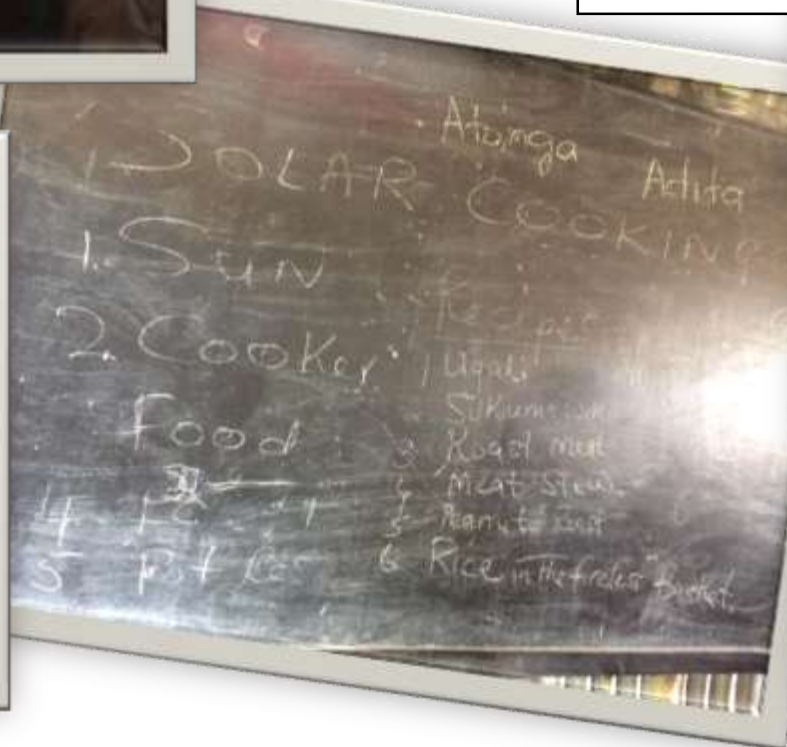 Atoinga Adita
SOLAR COOKING
1. SUN
2. Cooker
Food
4
5
Recipe
1 Ugali
Sukuma
3 Roast meat
4 Meat stew
5 Peanuts
6 Rice in the fireless basket